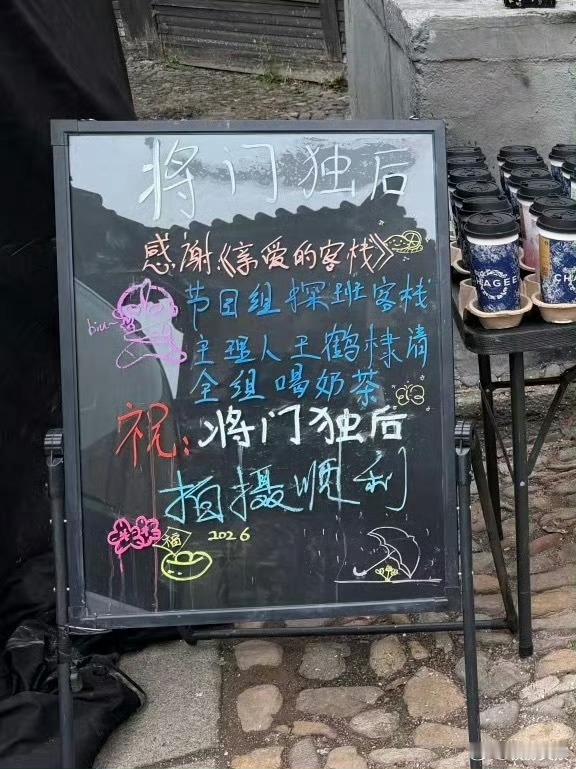 将门独后
感谢《亲爱的客栈》
节目组探班客栈
biu~
主理人王鹤棣请
全组喝奶茶
祝:将门独后
拍摄顺利
福
2026
CHAGEE
CHAGEE